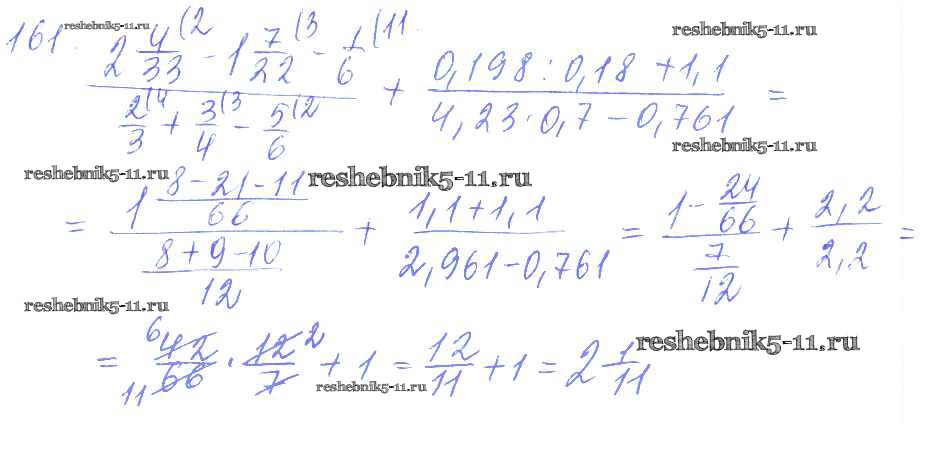 161. 2 4/33 (2 - 1 7/22 (3 - 1/6 (11 / 2/3 (4 + 3/4 (3 - 5/6 (2 + 0,198 : 0,18 + 1,1 / 4,23 · 0,7 - 0,761 =
= 1 8-21-11/66 / 8+9-10/12 + 1,1+1,1 / 2,961-0,761 = 1 - 24/66 / 7/12 + 2,2 / 2,2 =
= 6 42/66 11 · 12 2/7 + 1 = 12/11 + 1 = 2 1/11
reshebnik5-11.ru
reshebnik5-11.ru
reshebnik5-11.ru
reshebnik5-11.ru
reshebnik5-11.ru
reshebnik5-11.ru
reshebnik5-11.ru
reshebnik5-11.ru